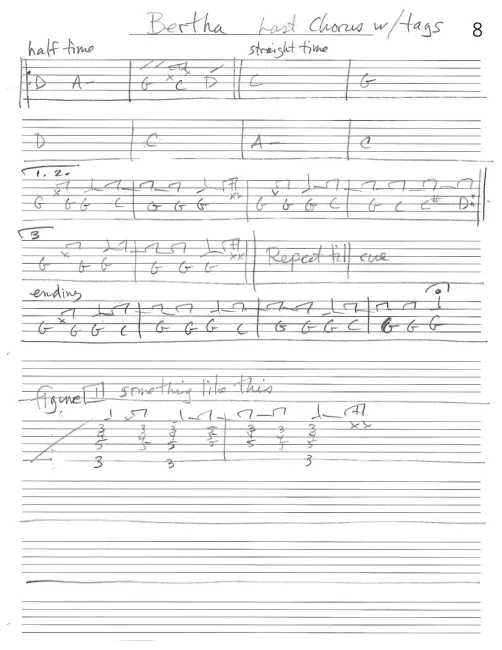 Bertha Last Chorus w/tags 8
half time straight time
D A- G x C D C G
D C A- C
1. 2.
G x G G C G G G xx G x G G C G C C# D
3
G x G G G G G xx Repeat till cue
ending
G x G G C G G G C G G G C G G G
figure 1 something like this
3 3 3 3 3 3 3
5 5 5 5 5 5 5 xx
3 3 3